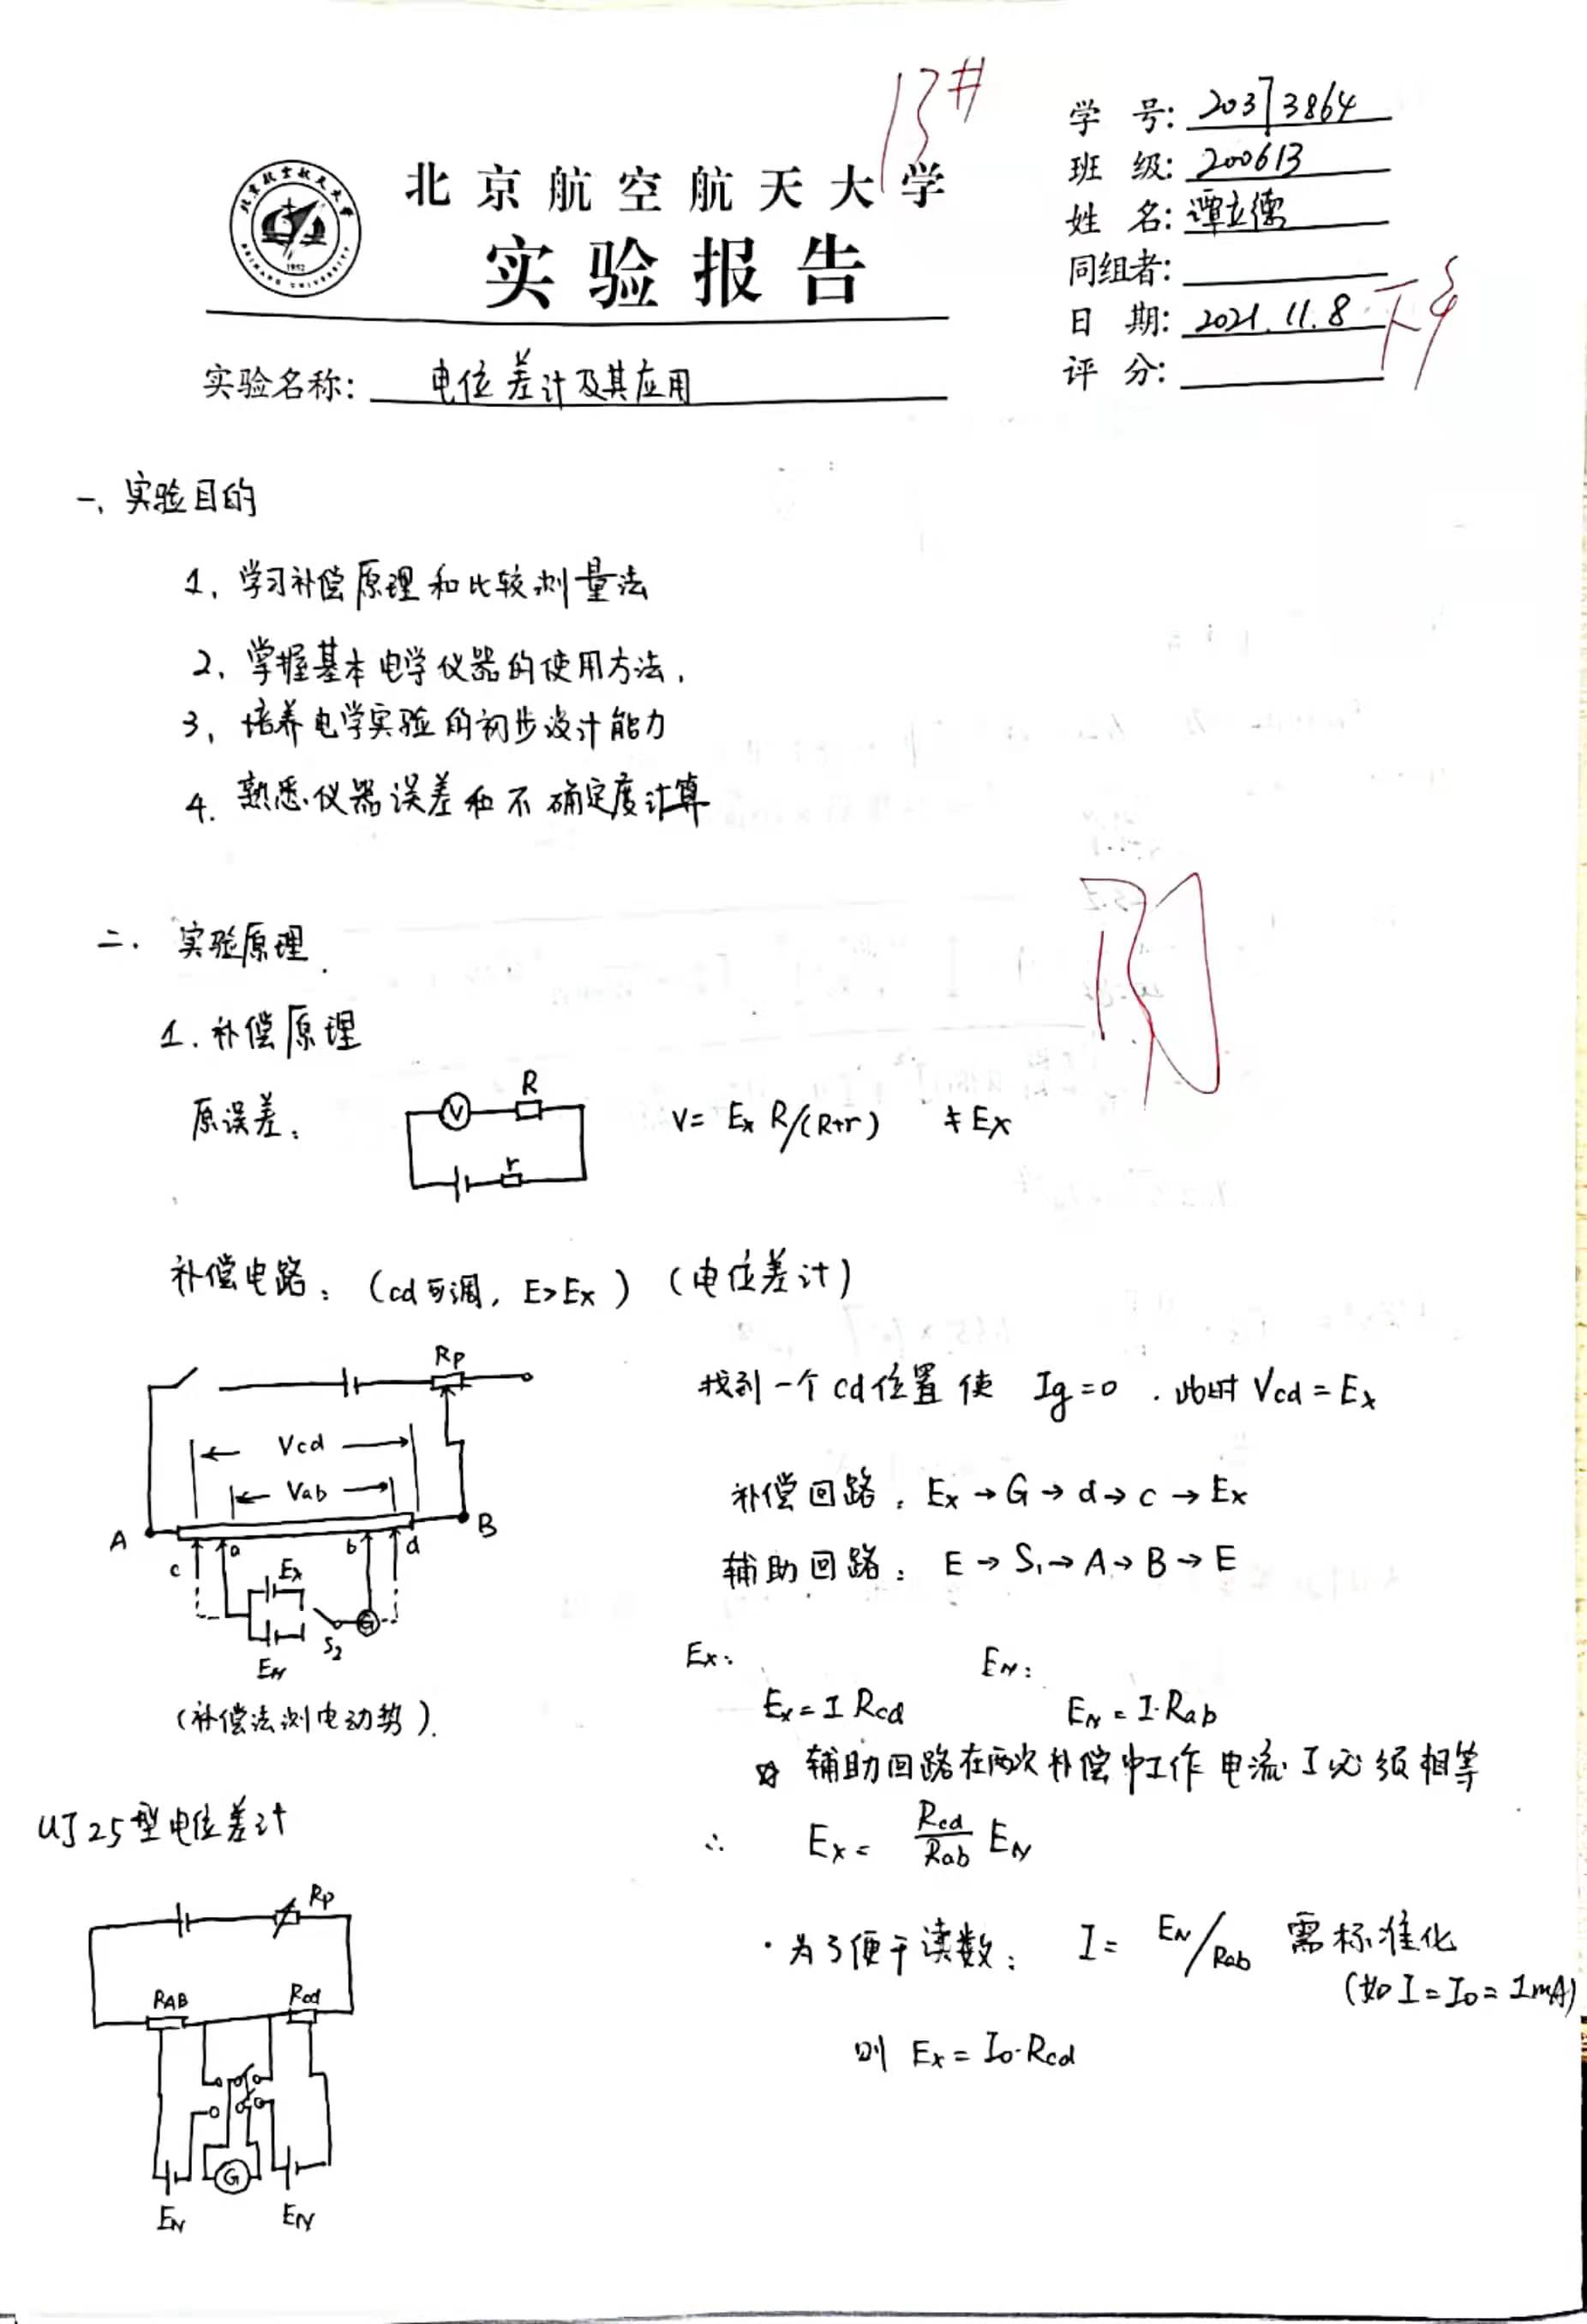 13#
学 号: 20373864
班 级: 200613
姓 名: 谭立德
同组者:
日 期: 2021.11.8
评 分:
北京航空航天大学
实验报告
实验名称: 电位差计及其应用
一、实验目的
1、学习补偿原理和比较测量法
2、掌握基本电学仪器的使用方法.
3、培养电学实验的初步设计能力
4. 熟悉仪器误差和不确定度计算
二. 实验原理.
1.补偿原理
原误差:
V R r
V= Ex R/(R+r) ≠Ex
补偿电路: (cd可调, E>Ex) (电位差计)
Rp
Vcd
Vab
A B
c a b d
Ex
G
S2
EN
(补偿法测电动势).
找到一个cd位置使 Ig=0 .此时 Vcd=Ex
补偿回路: Ex→G→d→c→Ex
辅助回路: E→S₁→A→B→E
Ex: EN:
Ex=I Rcd EN=I·Rab
☆ 辅助回路在两次补偿中工作电流I必须相等
∴ Ex= Rcd/Rab EN
·为了便于读数: I= EN/Rab 需标准化
(如I=I0=1mA)
则 Ex=I0·Rcd
UJ25型电位差计
Rp
RAB Rcd
G
EN EN